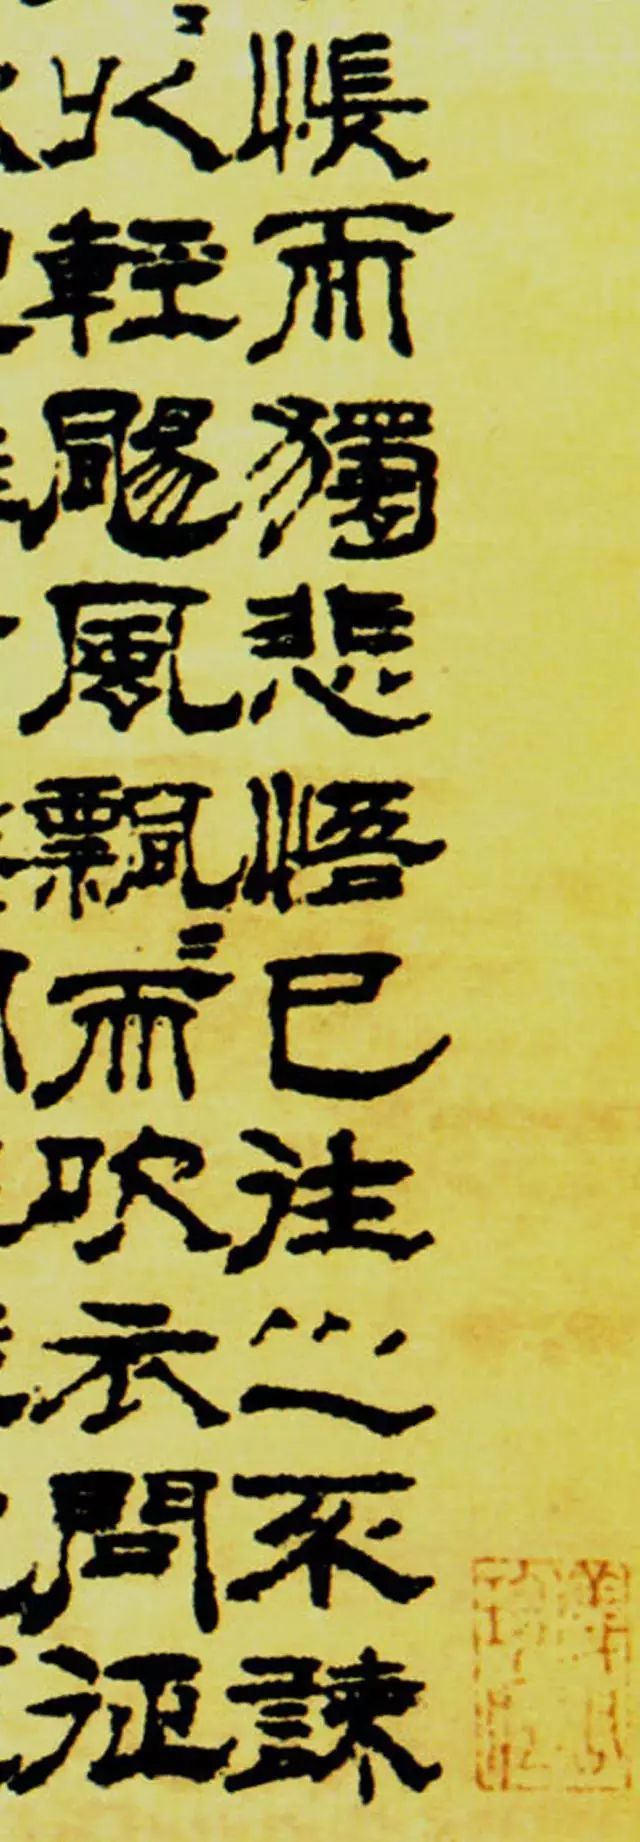 悵而獨悲悟已往之不諫
以輕颺風飄〻而吹衣問征